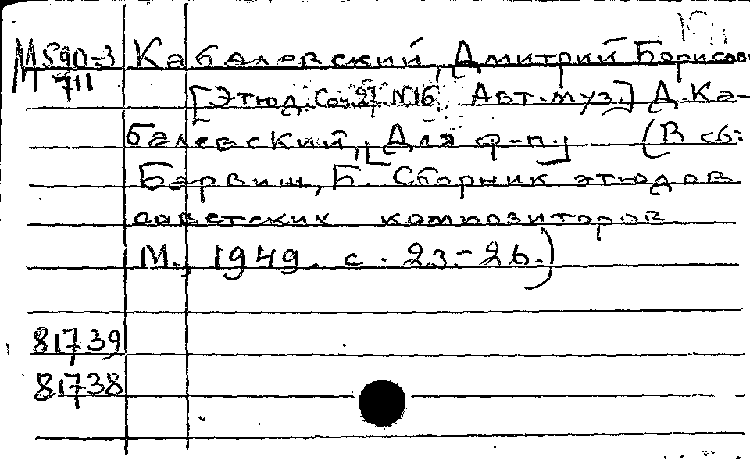 М 590-3 Кабалевский, Дмитрий Борисов
711
[Этюд. Соч. 27 N16. Авт. муз.] Д. Ка-
балевский, [Для ф-п.] (В сб:
Барвиш, Б. Сборник этюдов
советских композиторов
М., 1949. с. 23-26.)
81739
81738